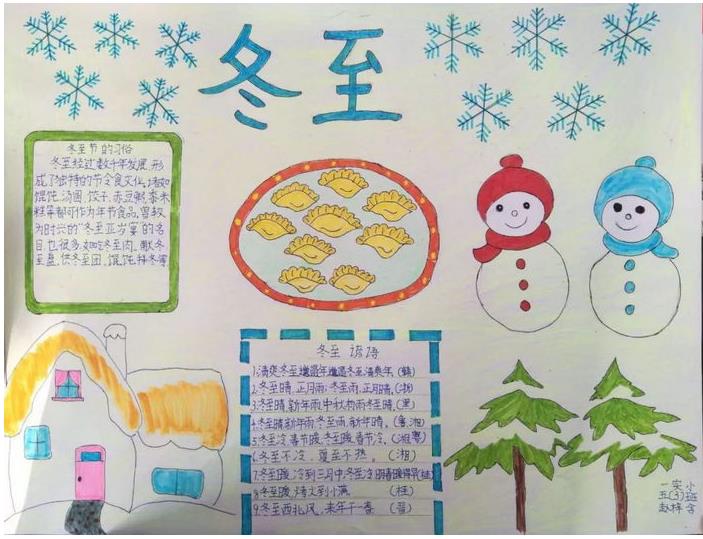 冬至
冬至节的习俗
冬至经过数千年发展,形
成了独特的节令食文化,诸如
馄饨、汤圆、饺子、赤豆粥、黍米
糕等都可作为年节食品。曾较
为时兴的“冬至亚岁宴”的名
目也很多,如吃冬至肉、献冬
至盘、供冬至团、馄饨拜冬等
冬至 谚语
1.清爽冬至邋遢年,邋遢冬至清爽年(赣)
2.冬至晴,正月雨;冬至雨,正月晴。
3.冬至晴,新年雨,中秋有雨冬至晴。
4.冬至晴,新年雨,冬至雨,新年晴。(鲁、湘)
5.冬至冷,春节暖,冬至暖,春节冷。(湘、粤)
6.冬至不冷,夏至不热。 (湘)
7.冬至暖,冷到三月中;冬至冷,明春暖得早(桂)
8.冬至暖,烤火到小满 (桂)
9.冬至西北风,来年干一春 (晋)
一实小
五(3)班
赵梓含